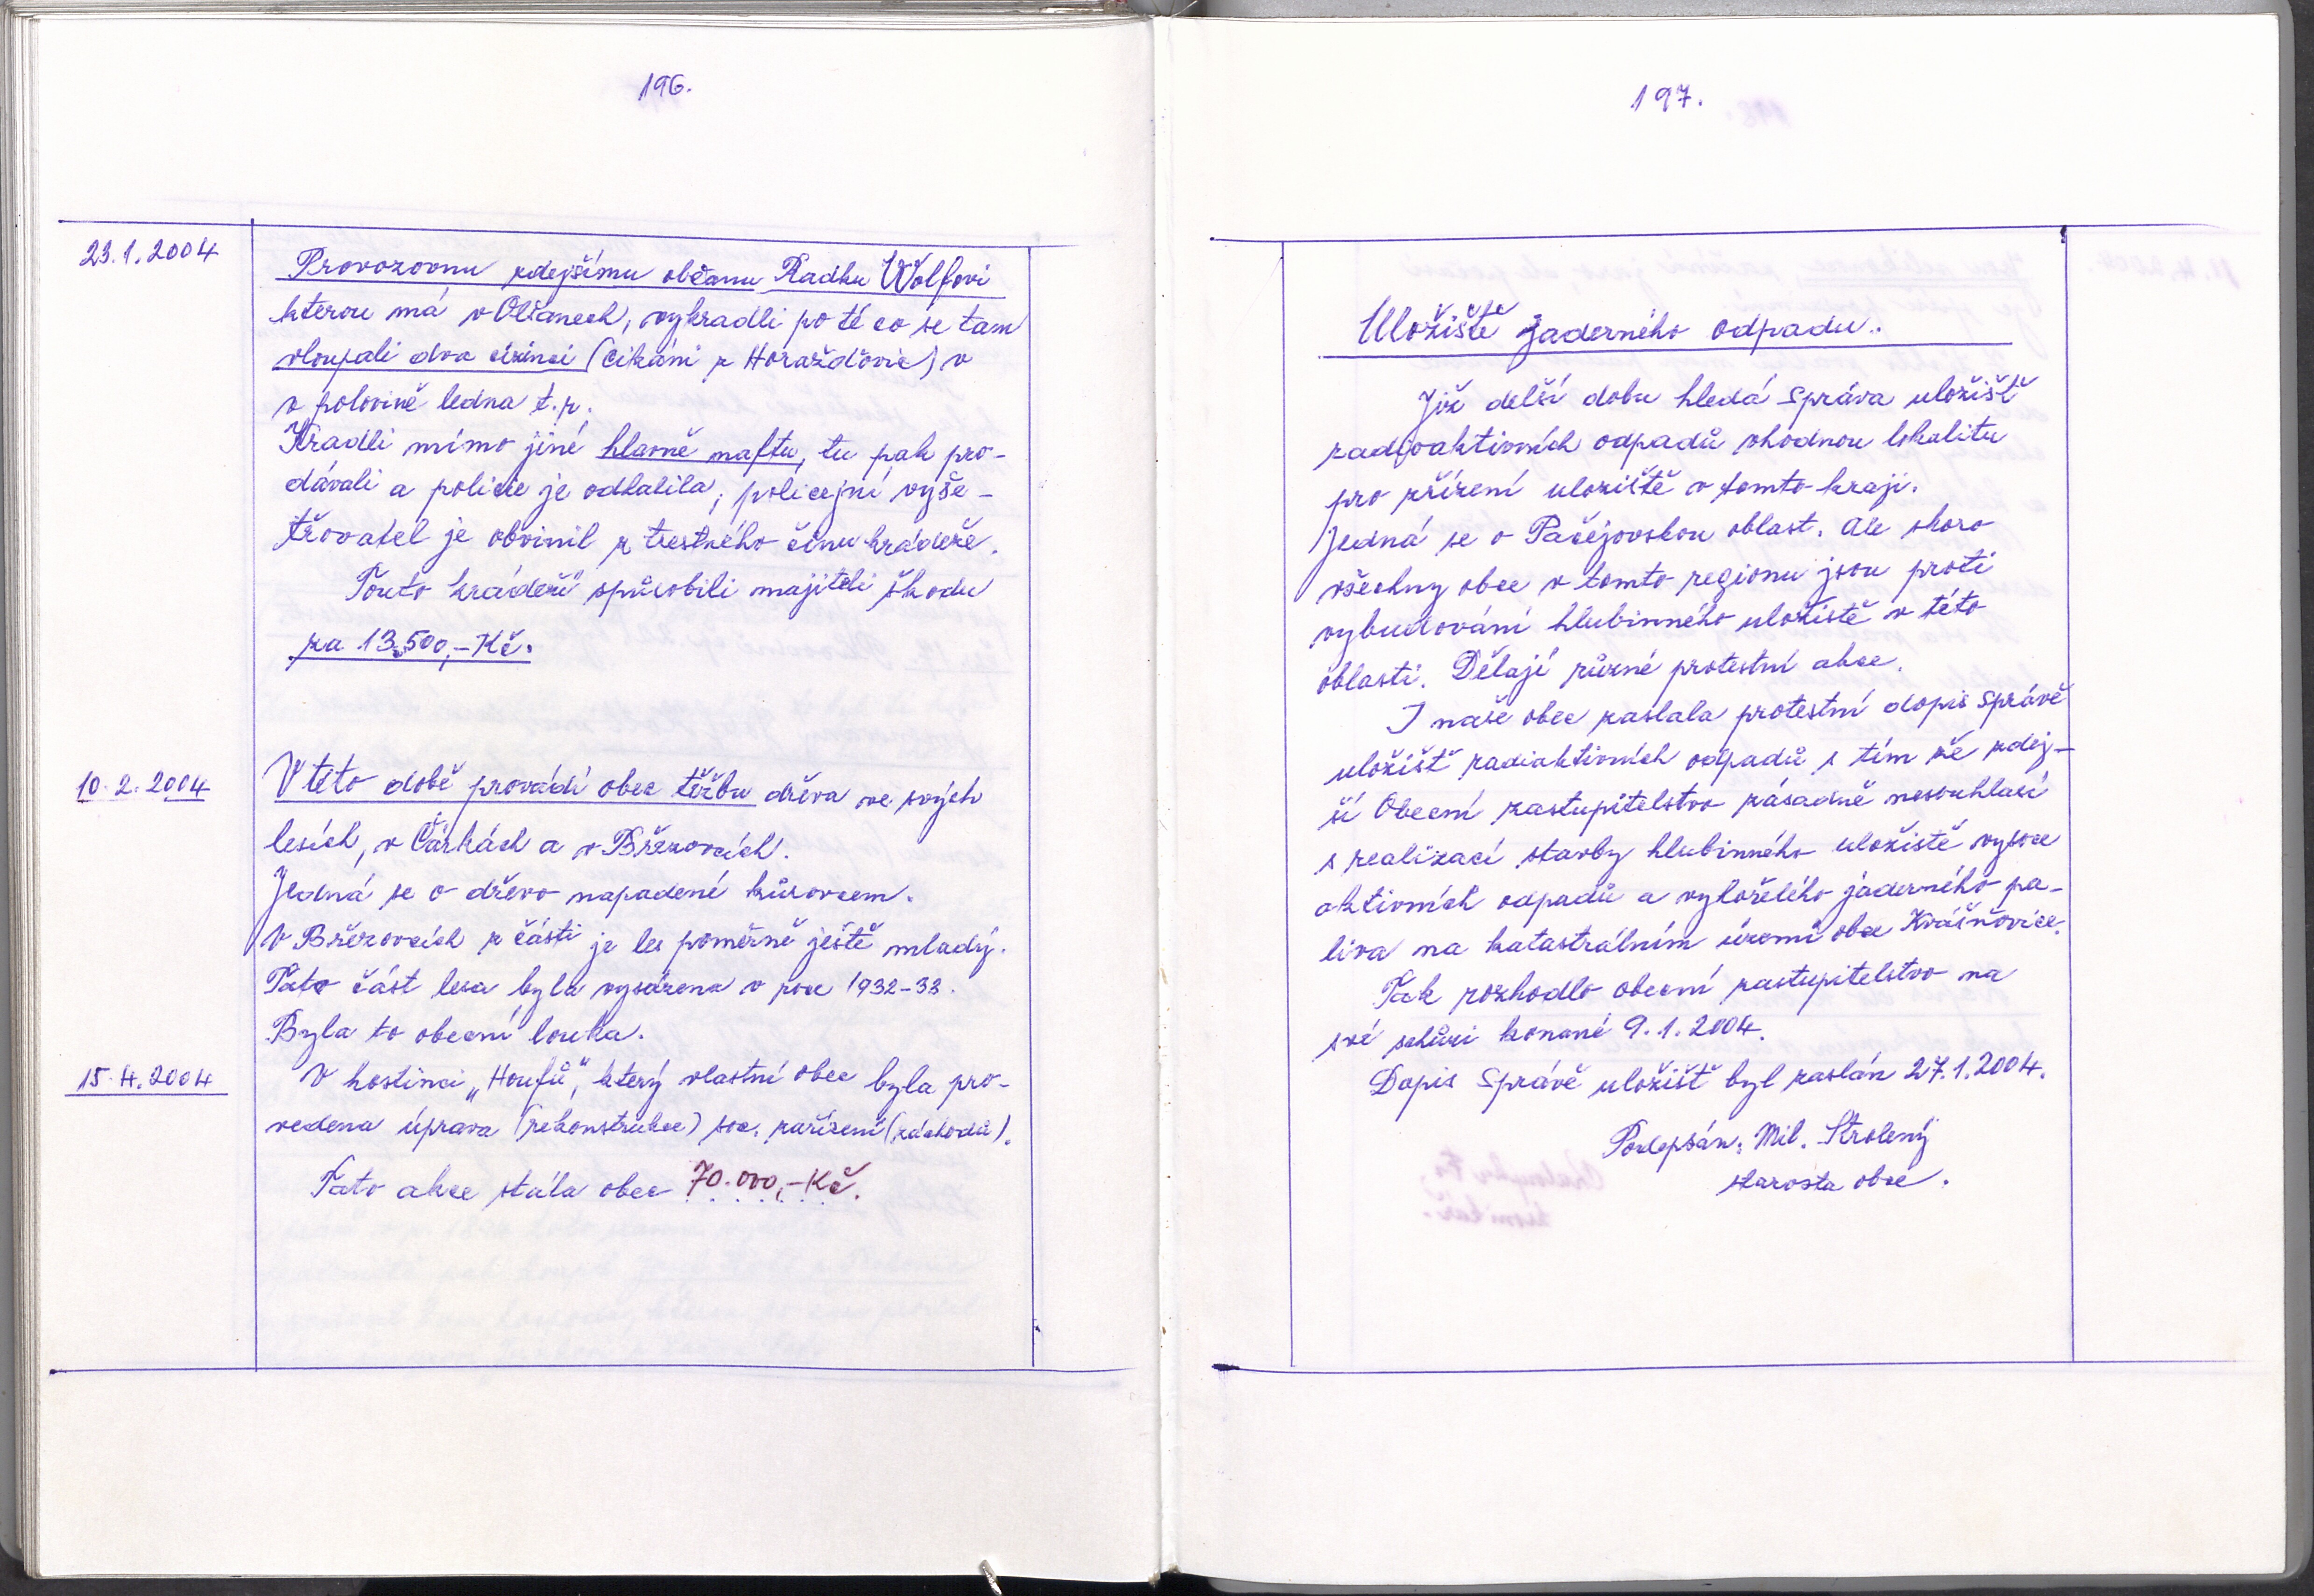 196.
23.1.2004
Provozovnu zdejšímu občanu Radku Wolfovi
kterou má v Olšanech, vykradli po té co se tam
vloupali dva cizinci (cikáni z Horažďovic) v
v polovině ledna t.r.
Kradli mimo jiné hlavně naftu, tu pak pro-
dávali a policie je odhalila, policejní vyše-
třovatel je obvinil z trestného činu krádeže.
Touto krádeží spůsobili majiteli škodu
za 13.500,-Kč.
10.2.2004
V této době provádí obec těžbu dřeva ve svých
lesích, v Čárkách a v Březovcích.
Jedná se o dřevo napadené kůrovcem.
V Březovcích z části je les poměrně ještě mladý.
Tato část lesa byla vysázena v roce 1932-33.
Byla to obecní louka.
15.4.2004
V hostinci „Houfů", který vlastní obec byla pro-
vedena úprava (rekonstrukce) soc. zařízení (záchodů).
Tato akce stála obec 70.000,-Kč.
197.
Uložiště jaderného odpadu.
Již delší dobu hledá Správa uložišť
radioaktivních odpadů vhodnou lokalitu
pro zřízení uloziště v tomto kraji.
Jedná se o Pačejovskou oblast. Ale skoro
všechny obce v tomto regionu jsou proti
vybudování hlubinného uložiště v této
oblasti. Dělají různé protestní akce.
I naše obec zaslala protestní dopis Správě
uložišť radiaktivních odpadů s tím že zdej-
ší Obecní zastupitelstvo zásadně nesouhlasí
s realizací stavby hlubinného uložiště vysoce
aktivních odpadů a vyhořelého jaderného pa-
liva na katastrálním území obce Kvášňovice.
Tak rozhodlo obecní zastupitelstvo na
své schůzi konané 9.1.2004.
Dopis Správě uložišť byl zaslán 27.1.2004.
Podepsán: Mil. Strolený
starosta obce.